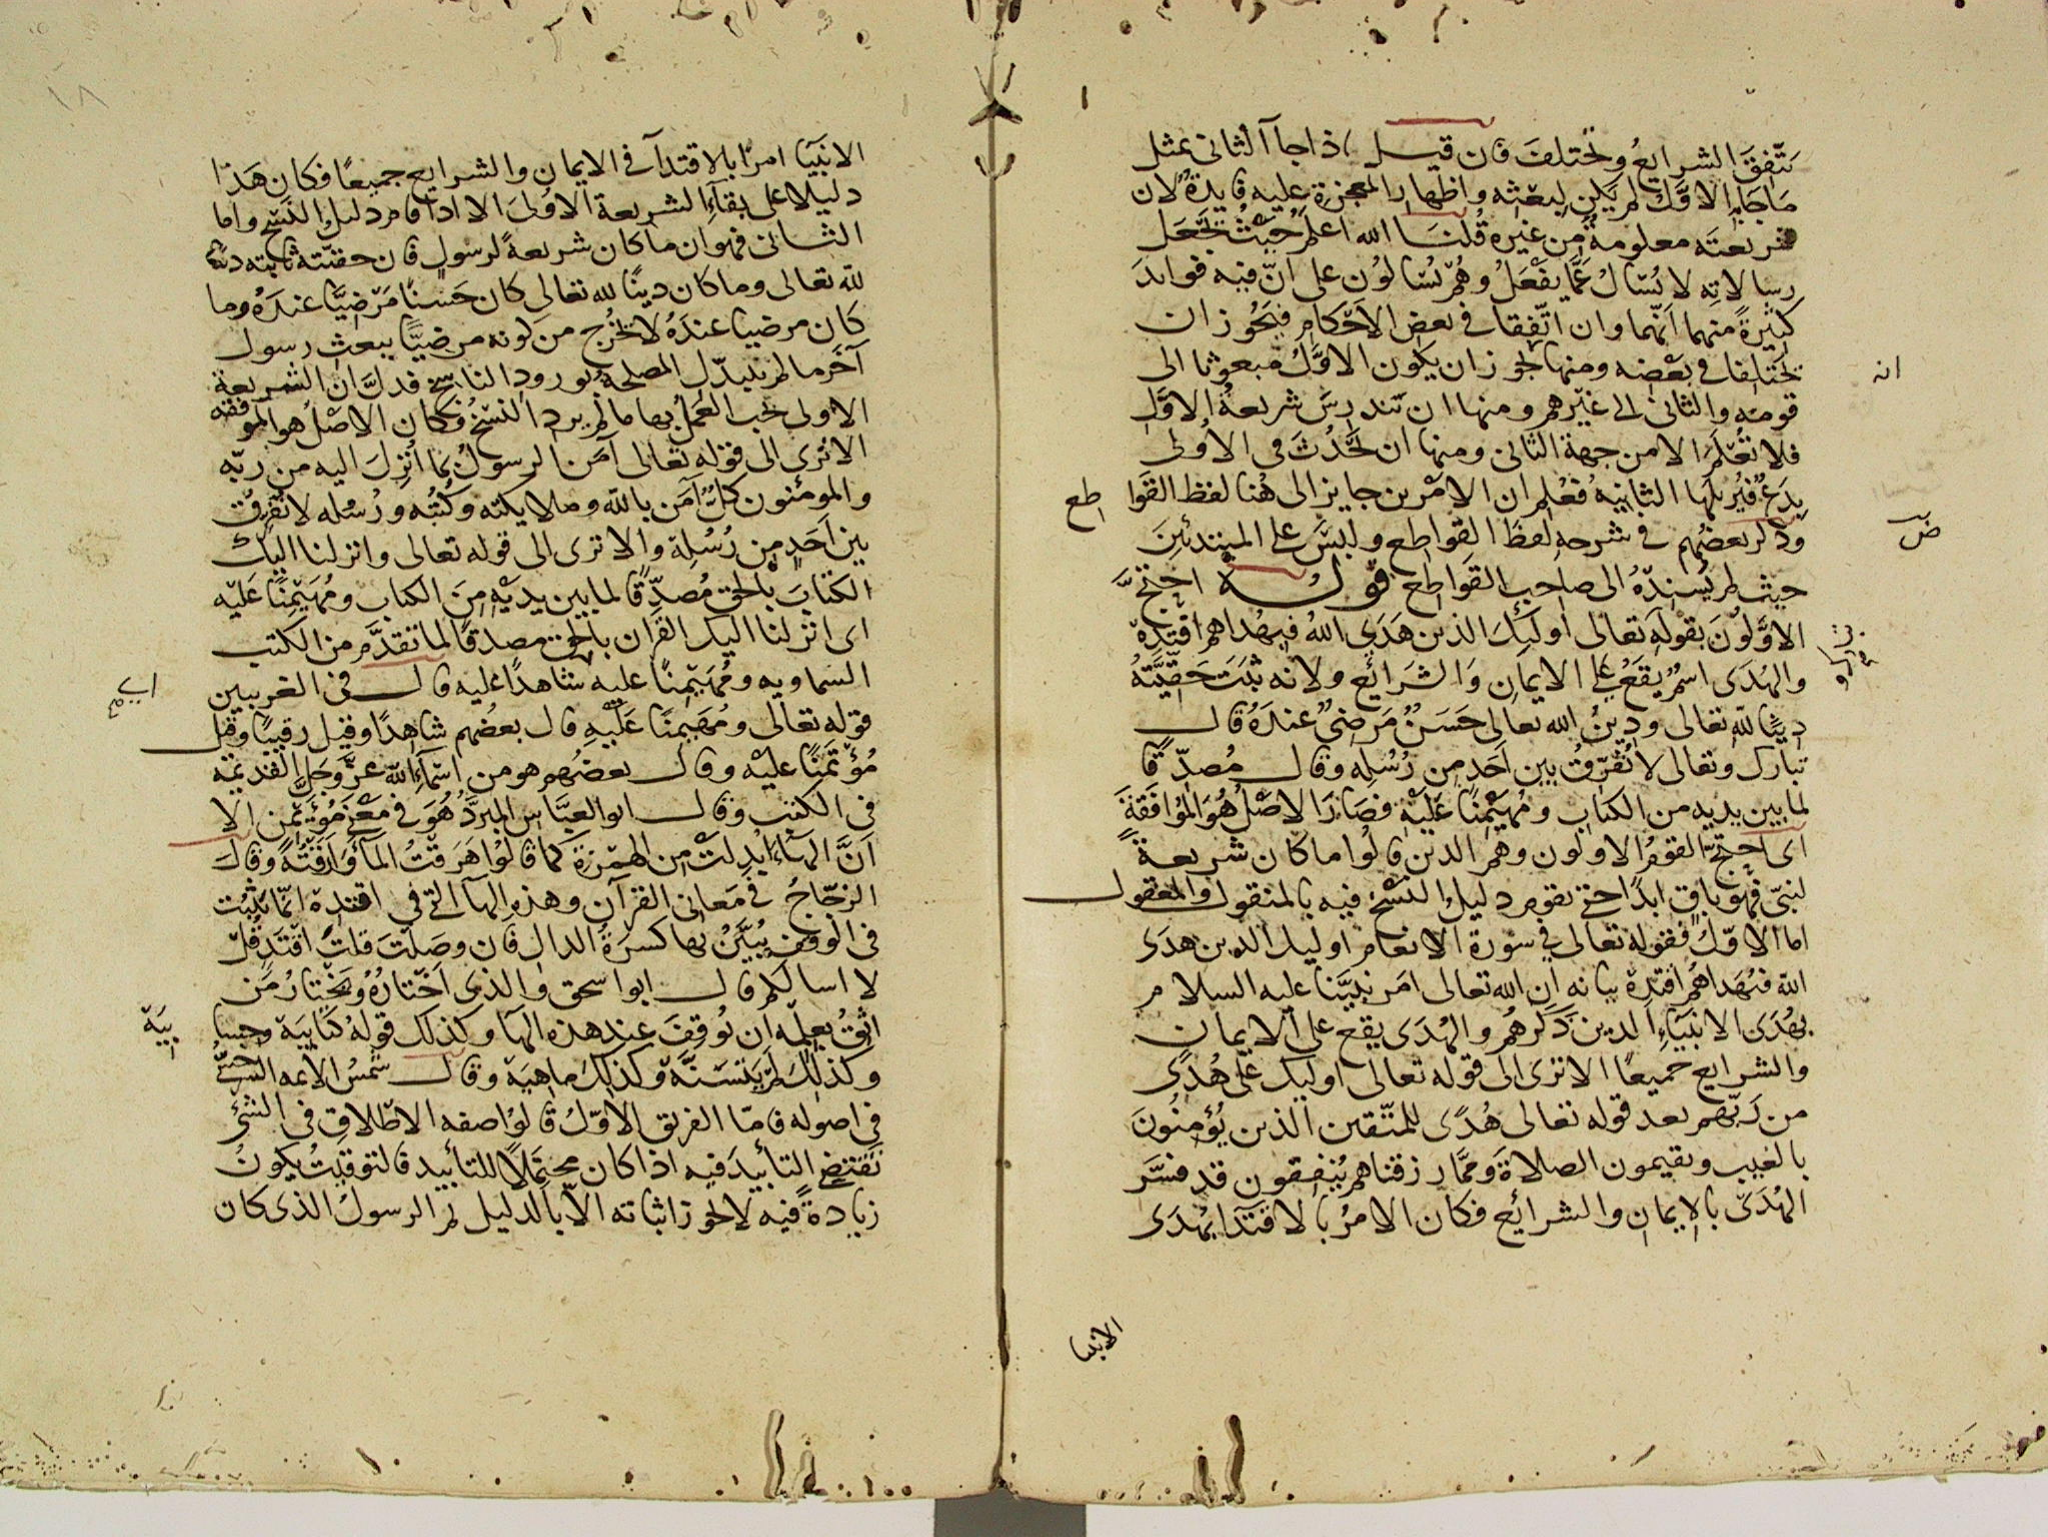 تتفق الشرايع وتختلف فان قيل اذا جا الثانى بمثل
ما جا به الاول لم يكن لبعثه واظهار المعجزة عليه فايدة لان
شريعته معلومة من غيره قلنا الله اعلم حيث يجعل
رسالاته لا يسال عما يفعل وهم يسالون على ان فيه فوايد
كثيرة منها انهما وان اتفقا فى بعض الاحكام فيجوز ان
يختلفا فى بعضه ومنها يجوز ان يكون الاول مبعوثا الى
انه
قومه والثانى الى غيرهم ومنها ان تندرس شريعة الاول
فلا تعلم الا من جهة الثانى ومنها ان يحدث فى الاولى
بدع فيزيلها الثانية فعلم ان الامرين جايز الى هنا لفظ القوا
طع
وذكر بعضهم فى شرحه لفظ القواطع ولبس على المبتدئين
حيث لم يسنده الى صاحب القواطع قوله احتج
الاولون بقوله تعالى اوليك الذين هدى الله فبهداهم اقتده
والهدى اسم يقع على الايمان والشرائع ولانه ثبت حقيته
دينا لله تعالى ودين الله تعالى حسن مرضى عنده قال
تبارك وتعالى لا نفرق بين احد من رسله وقال مصدقا
لما بين يديه من الكتاب ومهيمنا عليه فصار الاصل هو الموافقة
اى احتج القوم الاولون وهم الذين قالوا ما كان شريعة
لنبى فهو باق ابدا حتى يقوم دليل النسخ فيه بالمنقول والمعقول
اما الاول فقوله تعالى فى سورة الانعام اوليك الذين هدى
الله فبهداهم اقتده بيانه ان الله تعالى امر نبينا عليه السلام
بهدى الانبياء الذين ذكرهم والهدى يقع على الايمان
والشرايع جميعا الا ترى الى قوله تعالى اوليك على هدى
من ربهم بعد قوله تعالى هدى للمتقين الذين يؤمنون
بالغيب ويقيمون الصلاة ومما رزقناهم ينفقون قد فسر
الهدى بالايمان والشرائع فكان الامر بالاقتدا بهدى
الانبيا
١٨
الانبيا امرا بالاقتدآ فى الايمان والشرايع جميعا فكان هذا
دليلا على بقاء الشريعة الاولى الا اذا قام دليل النسخ واما
الثانى فهو ان ما كان شريعة لرسول فان حقيته ثابتة دينا
لله تعالى وما كان دينا لله تعالى كان حسنا مرضيا عنده وما
كان مرضيا عنده لا يخرج من كونه مرضيا ببعث رسول
آخر ما لم يتبدل المصلحة بورود الناسخ فدل ان الشريعة
الاولى يجب العمل بها ما لم يرد النسخ فكان الاصل هو الموافقه
الا ترى الى قوله تعالى آمن الرسول بما انزل اليه من ربه
والمومنون كل آمن بالله وملايكته وكتبه ورسله لا نفرق
بين احد من رسله والا ترى الى قوله تعالى وانزلنا اليك
الكتاب بالحق مصدقا لما بين يديه من الكتاب ومهيمنا عليه
اى انزلنا اليك القران بالحق مصدقا لما تقدم من الكتب
السماويه ومهيمنا عليه شاهدا عليه قال فى الغريبين
قوله تعالى ومهيمنا عليه قال بعضهم شاهدا وقيل رقيبا وقيل
مؤتمنا عليه وقال بعضهم هو من اسماء الله عز وجل القديمة
فى الكتب وقال ابو العباس المبرد هو فى معنى مؤتمن الا
ان الهاء ابدلت من الهمزة كما قالوا هرقت الما وارقته وقال
الزجاج فى معانى القرآن وهذه الهآ التى فى اقتده انما تثبت
فى الوقف يبين بها كسرة الدال فان وصلت قلت اقتد قل
لا اسالكم قال ابو اسحق والذى اختاره ويختار من
اثق بعلمه ان يوقف عند هذه الهآ وكذلك قوله كتابية وحسا
بية
وكذلك لم يتسنه وكذلك ماهية وقال شمس الائمه السرخسى
فى اصوله فاما الفريق الاول قالوا صفه الاطلاق فى الشئ
يقتضى التأبيد فيه اذا كان محتملا للتأبيد فالتوقيت يكون
زيادة فيه لا يجوز اثباته الا بالدليل ثم الرسول الذى كان